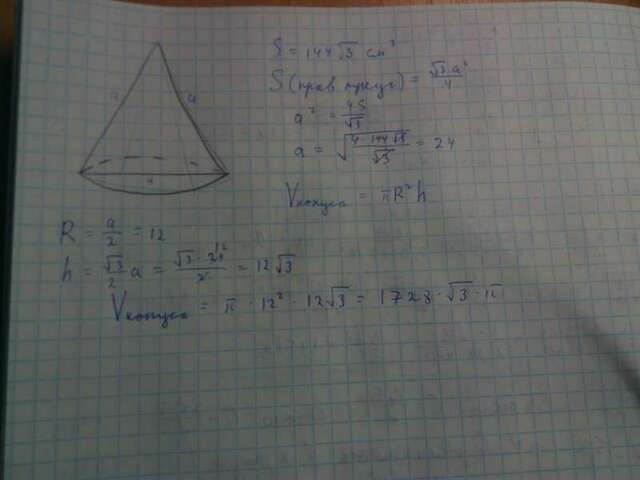 a a
a
S = 144√3 см²
S (прав треуг) = √3·a²/4
a² = 4S/√3
a = √(4·144√3/√3) = 24
Vконуса = πR²h
R = a/2 = 12
h = √3/2 a = √3·24¹²/2 = 12√3
Vконуса = π · 12² · 12√3 = 1728·√3·π